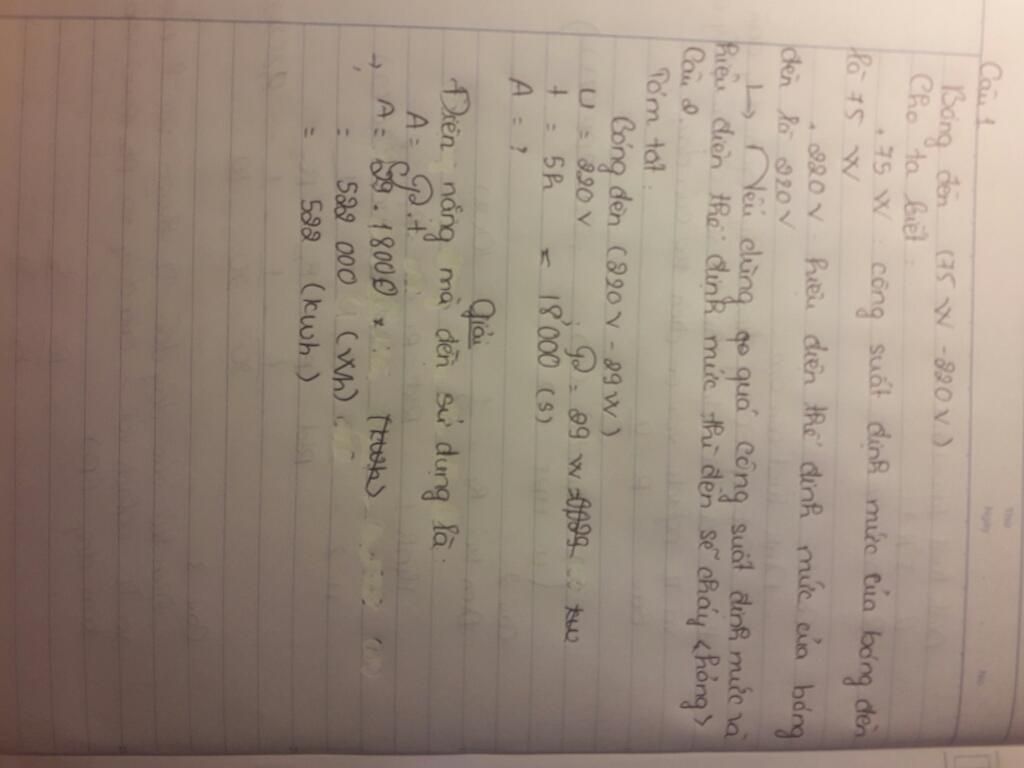 Câu 1
Bóng đèn (75 W - 220 V)
Cho ta biết:
. 75 W công suất định mức của bóng đèn
là 75 W
. 220 V hiệu điện thế định mức của bóng
đèn là 220 V
↳ Nếu dùng quá công suất định mức và
hiệu điện thế định mức thì đèn sẽ cháy (hỏng)
Câu 2
Tóm tắt:
Bóng đèn (220 V - 29 W)
U = 220 V , P = 29 W
t = 5h = 18 000 (s)
A = ?
Giải
Điện năng mà đèn sử dụng là:
A = P.t
→ A = 29. 18000
= 522 000 (Wh)
= 522 (kwh)